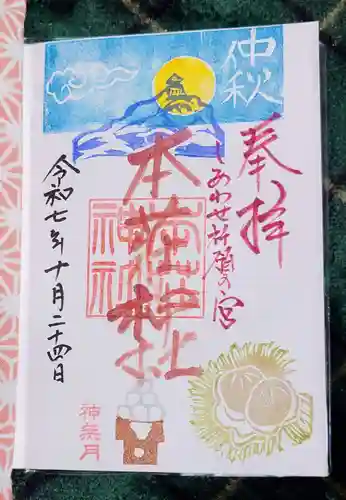 仲秋
奉拝
しあわせ祈願の宮
本荘神社
令和七年十月二十四日
神無月